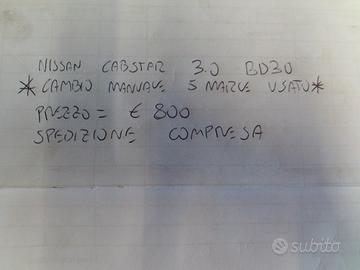 NISSAN CABSTAR 3.0 BD30
* CAMBIO MANUALE 5 MARCE USATO *
PREZZO = € 800
SPEDIZIONE COMPRESA
subito